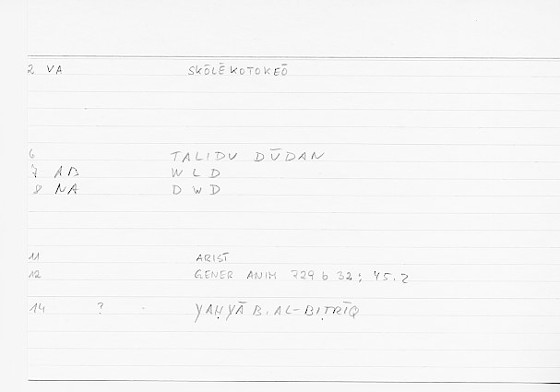 2 VA SKŌLĒKOTOKEŌ
6 TALIDU DŪDAN
7 AB W L D
8 NA D W D
11 ARIST
12 GENER ANIM 729 b 32; 45.2
14 ? YAḤYĀ B. AL-BIṬRĪQ